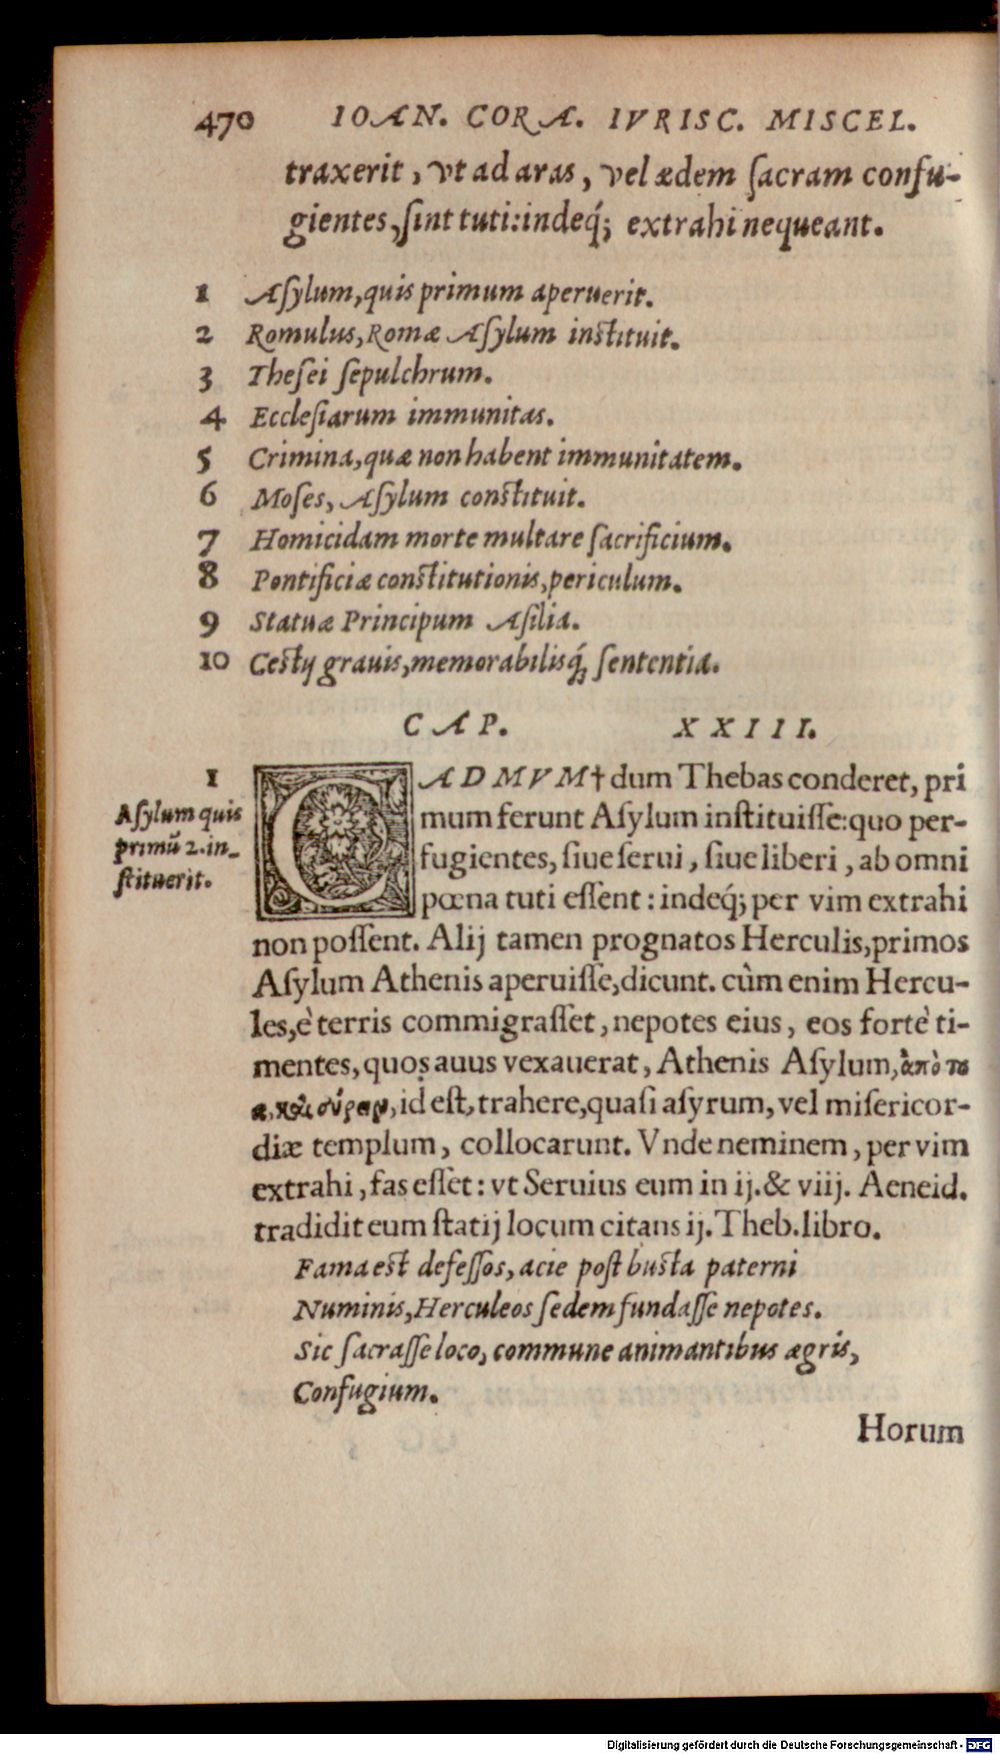 470 IOAN. CORA. IVRISC. MISCEL.
traxerit, vt ad aras, vel ædem ſacram confu-
gientes, ſint tuti: indeq́; extrahi nequeant.
1 Aſylum, quis primum aperuerit.
2 Romulus, Romæ Aſylum inſtituit.
3 Theſei ſepulchrum.
4 Eccleſiarum immunitas.
5 Crimina, quæ non habent immunitatem.
6 Moſes, Aſylum conſtituit.
7 Homicidam morte multare ſacrificium.
8 Pontificiæ conſtitutionis, periculum.
9 Statuæ Principum Aſilia.
10 Ceſtij grauis, memorabilisq́; ſententia.
CAP. XXIII.
1
Aſylum quis
primū 2. in-
ſtituerit.
CADMVM† dum Thebas conderet, pri
mum ferunt Aſylum inſtituiſſe: quo per-
fugientes, ſiue ſerui, ſiue liberi, ab omni
pœna tuti eſſent: indeq́; per vim extrahi
non poſſent. Alij tamen prognatos Herculis, primos
Aſylum Athenis aperuiſſe, dicunt. cùm enim Hercu-
les, è terris commigraſſet, nepotes eius, eos fortè ti-
mentes, quos auus vexauerat, Athenis Aſylum, ἀπὸ τ
α, καὶ σύρειν, id eſt, trahere, quaſi aſyrum, vel miſericor-
diæ templum, collocarunt. Vnde neminem, per vim
extrahi, fas eſſet: vt Seruius eum in ij. & viij. Aeneid.
tradidit eum ſtatij locum citans ij. Theb. libro.
Fama eſt defeſſos, acie poſt buſta paterni
Numinis, Herculeos ſedem fundaſſe nepotes.
Sic ſacraſſe loco, commune animantibus ægris,
Confugium.
Horum
Digitalisierung gefördert durch die Deutsche Forschungsgemeinschaft - DFG